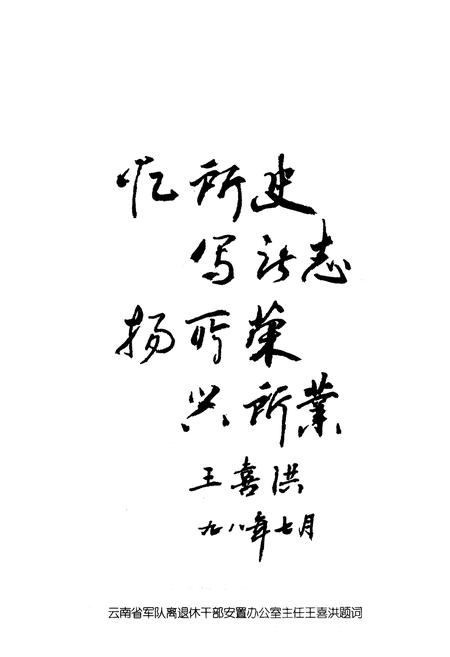 忆所史
写所志
扬所荣
兴所業
王喜洪
九八年七月
云南省军队离退休干部安置办公室主任王喜洪题词